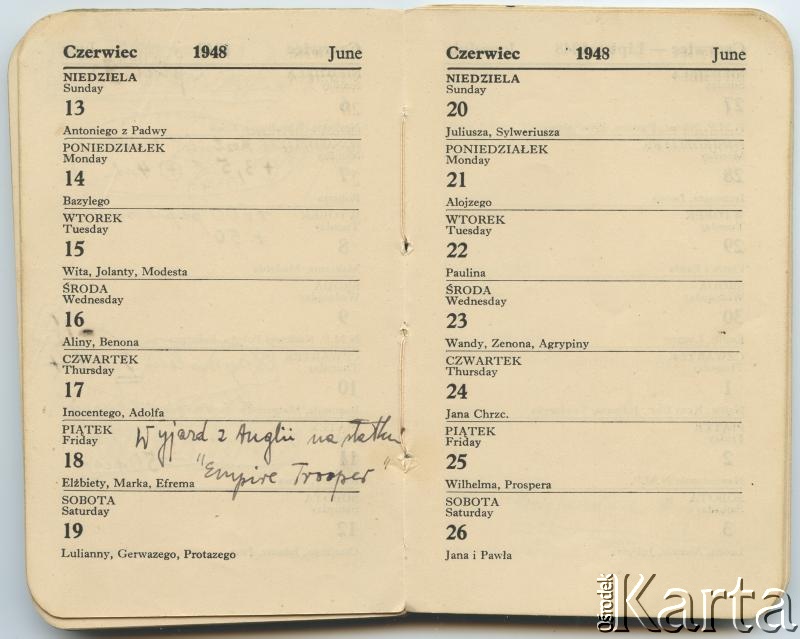 Czerwiec 1948 June
NIEDZIELA
Sunday
13
Antoniego z Padwy
PONIEDZIAŁEK
Monday
14
Bazylego
WTOREK
Tuesday
15
Wita, Jolanty, Modesta
ŚRODA
Wednesday
16
Aliny, Benona
CZWARTEK
Thursday
17
Inocentego, Adolfa
PIĄTEK
Friday
Wyjazd z Anglii na statku
18
"Empire Trooper"
Elżbiety, Marka, Efrema
SOBOTA
Saturday
19
Lulianny, Gerwazego, Protazego
Czerwiec 1948 June
NIEDZIELA
Sunday
20
Juliusza, Sylweriusza
PONIEDZIAŁEK
Monday
21
Alojzego
WTOREK
Tuesday
22
Paulina
ŚRODA
Wednesday
23
Wandy, Zenona, Agrypiny
CZWARTEK
Thursday
24
Jana Chrzc.
PIĄTEK
Friday
25
Wilhelma, Prospera
SOBOTA
Saturday
26
Jana i Pawła
Ośrodek Karta